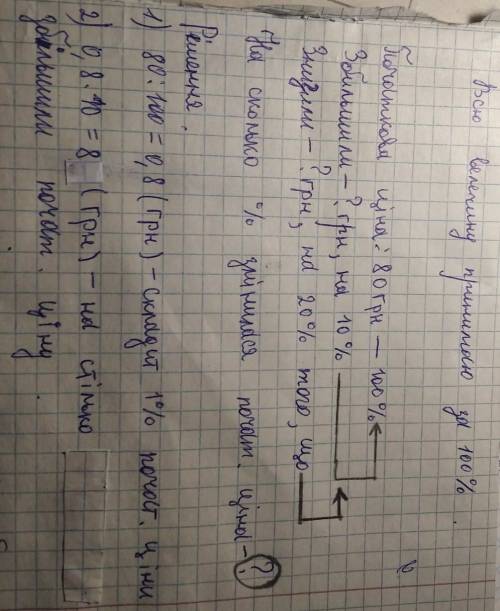 Всю величину принимаю за 100%
Початкова ціна: 80 грн — 100%
Збільшили - ? грн, на 10%
Знизили - ? грн, на 20% того, що
На сколько % змінилася почат. ціна - ?
Рішення.
1) 80 : 100 = 0,8 (грн) - складит 1% почат. ціни
2) 0,8 · 10 = 8 (грн) - на стілько
збільшили почат. ціну.